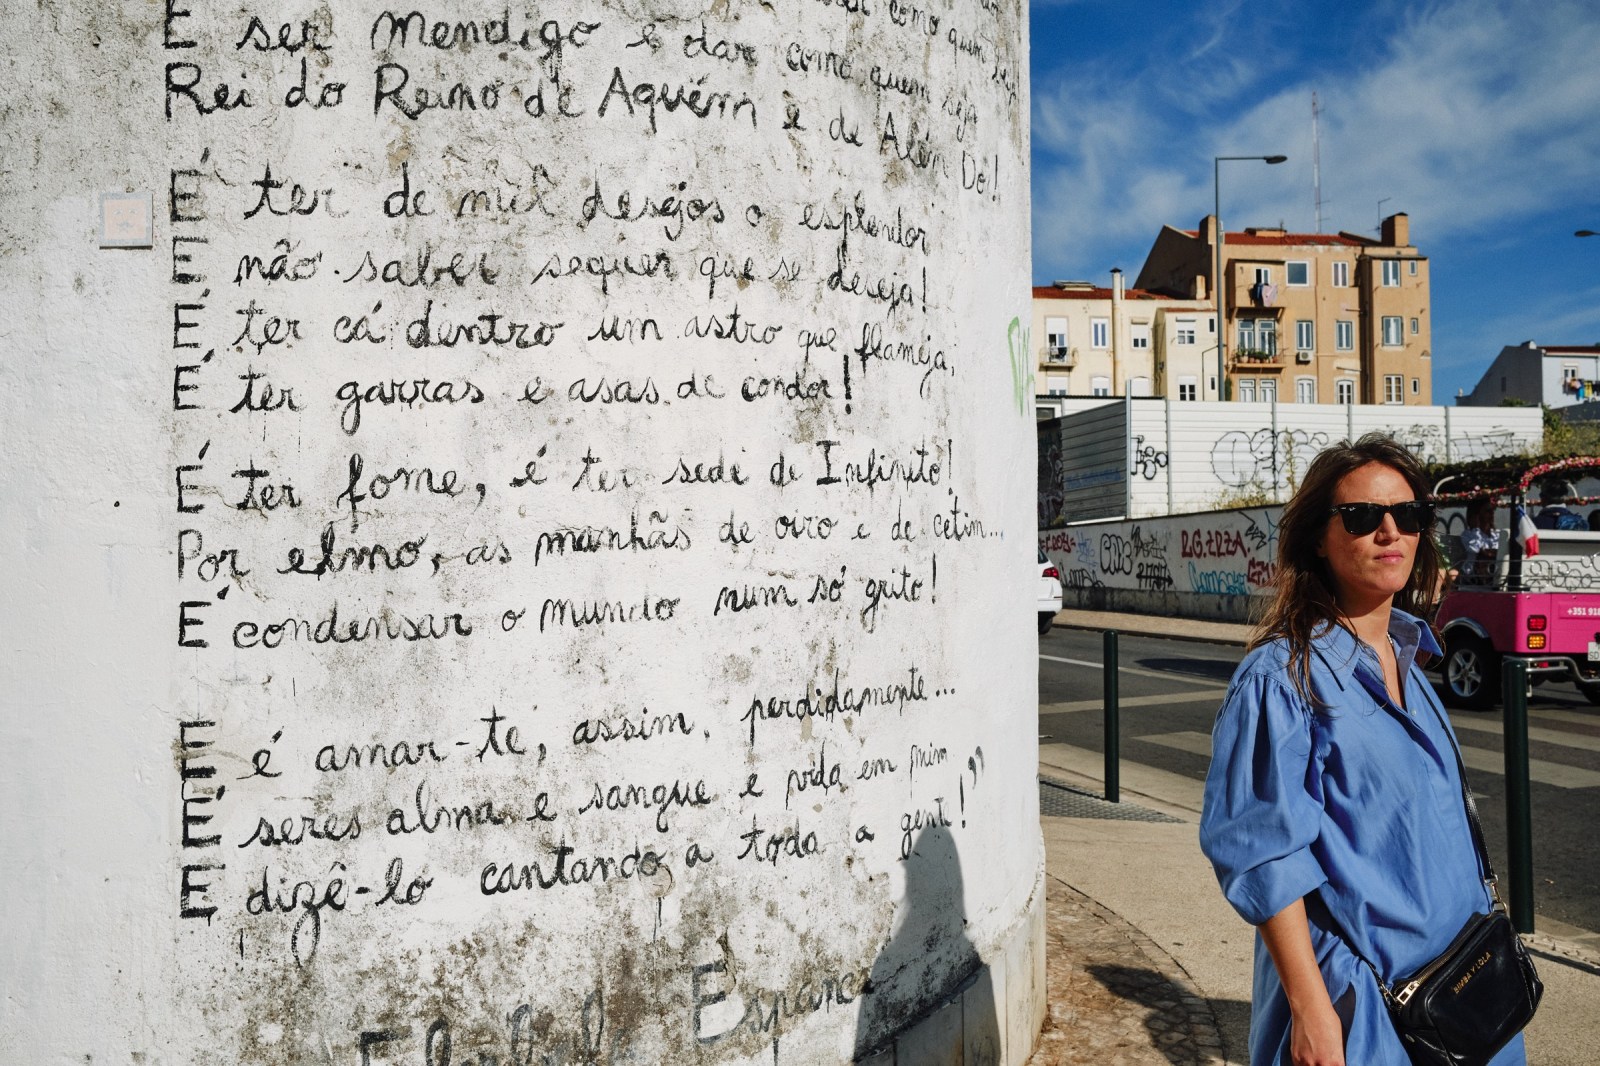 como quem seja
É ser Mendigo e dar como quem seja
Rei do Reino de Aquém e de Além Dor!
É ter de mil desejos o esplendor
E não saber sequer que se deseja!
É ter cá dentro um astro que flameja,
É ter garras e asas de condor!
É ter fome, é ter sede de Infinito!
Por elmo, as manhãs de oiro e de cetim...
É condensar o mundo num só grito!
E é amar-te, assim, perdidamente...
É seres alma e sangue e vida em mim
E dizê-lo cantando a toda a gente!"
Florbela Espanca
BIMBA Y LOLA
R.G.ZRZA
+351 918